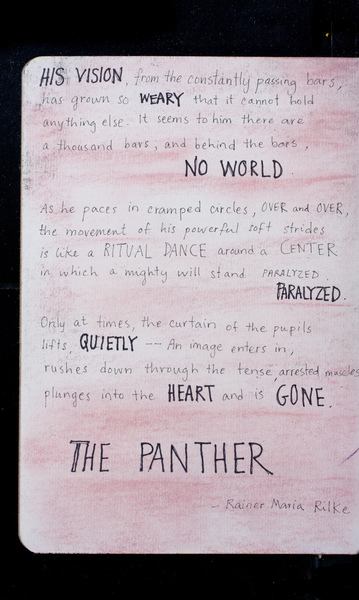 HIS VISION, from the constantly passing bars,
has grown so WEARY that it cannot hold
anything else. It seems to him there are
a thousand bars, and behind the bars,
NO WORLD
As he paces in cramped circles, OVER and OVER,
the movement of his powerful soft strides
is like a RITUAL DANCE around a CENTER
in which a mighty will stand PARALYZED.
PARALYZED.
Only at times, the curtain of the pupils
lifts, QUIETLY -- An image enters in,
rushes down through the tense, arrested muscles
plunges into the HEART and is GONE.
THE PANTHER
- Rainer Maria Rilke